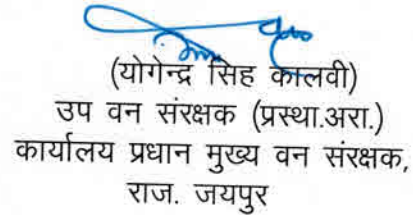 (योगेन्द्र सिंह कालवी)
उप वन संरक्षक (प्रस्था.अरा.)
कार्यालय प्रधान मुख्य वन संरक्षक,
राज. जयपुर